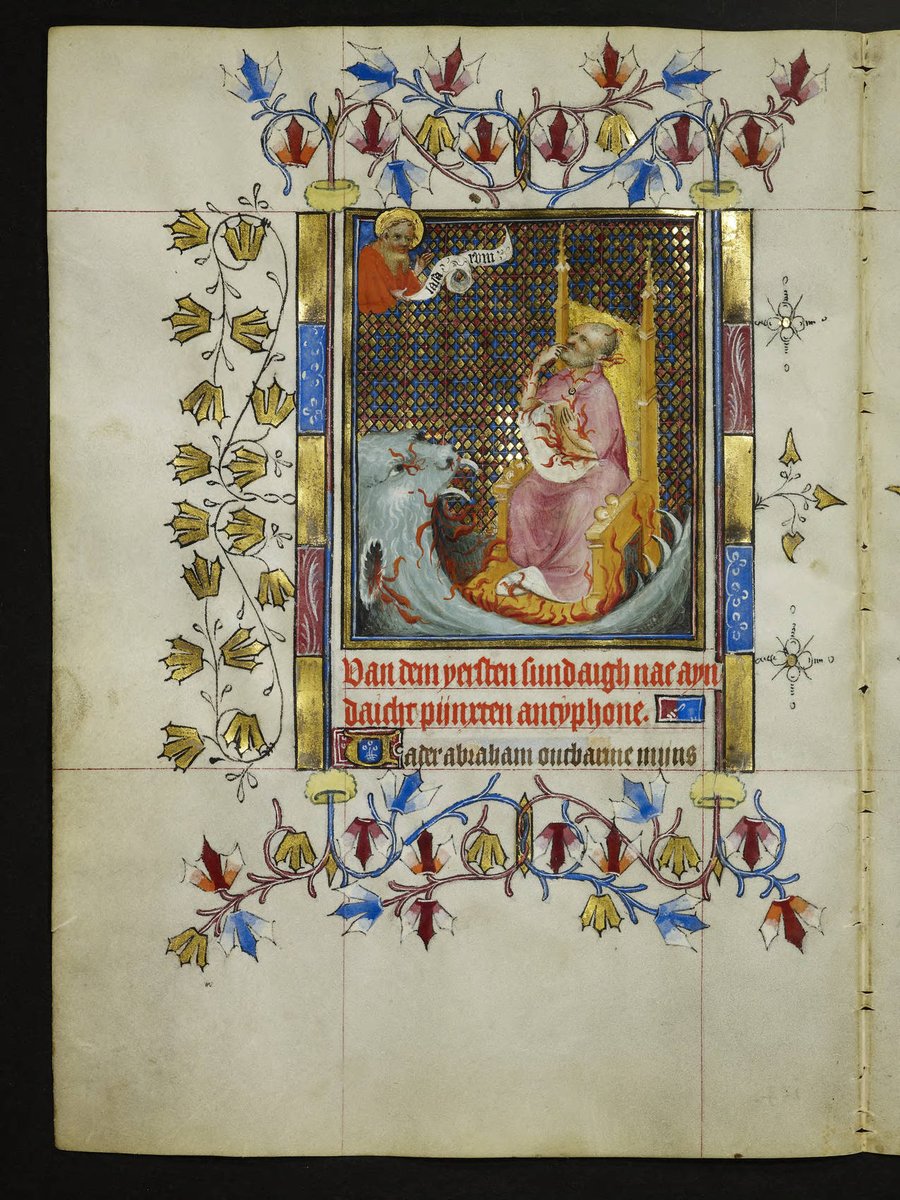 lasa rum
Van dem yersten sundaigh nae ayn
daicht pijnxten antyphone.
Vader abraham ontbarme mijns